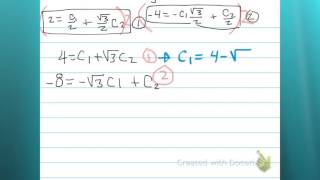 (2 = C₁/2 + √3/2 C₂)2 ① (-4 = -C₁√3/2 + C₂/2)2 ②
4 = C₁ + √3 C₂ ① → C₁ = 4 - √
-8 = -√3 C₁ + C₂ ②
Created with Doceri